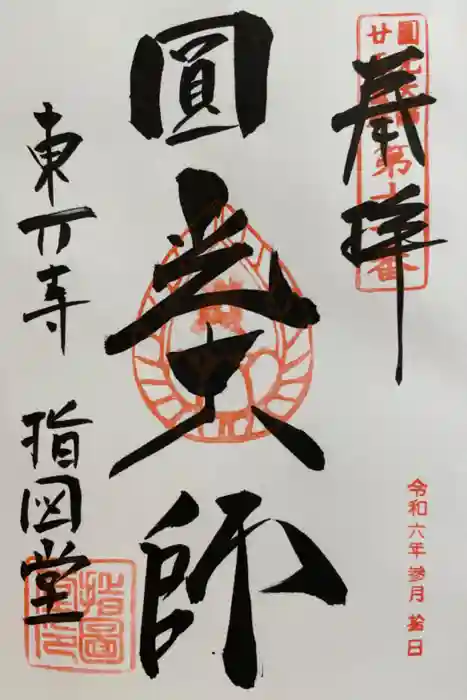 奉拝
圓光大師
第十一番
圓光大師
東大寺 指図堂
指圖堂印
令和六年参月拾日